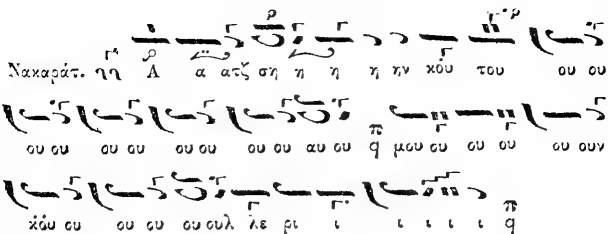 Νακαράτ. ηη Α α ατζ ση η η η ην κόυ του ου ου
ου ου ου ου ου ου ου ου αυ ου π q μου ου ου ου ου ουν
κόυ ου ου ου ου ουλ λε ρι ι ι ι ι ι π q